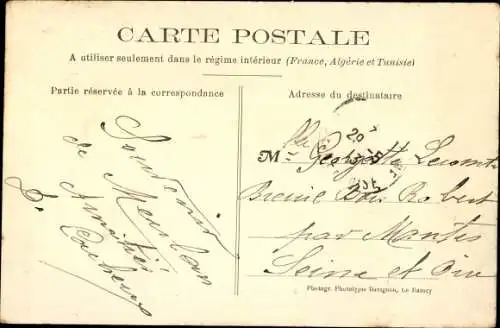 CARTE POSTALE
A utiliser seulement dans le régime intérieur (France, Algérie et Tunisie)
Partie réservée à la correspondance
Adresse du destinataire
Souvenir
de Meulan
Amitiés
M Georgette Lecomte
Breine Bois Robert
par Mantes
Seine et Oise
Photogr. Phototypie Bavignon, Le Raincy